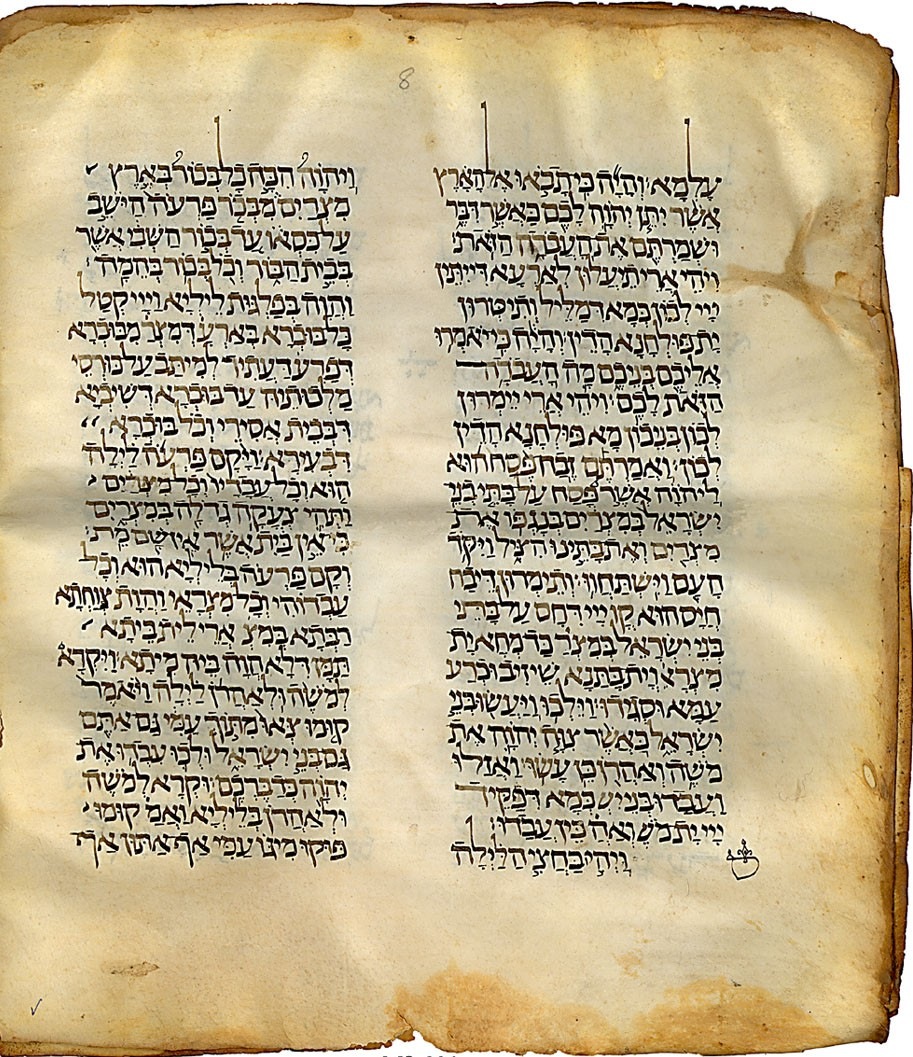 8
עלמא והיה כי תבאו אל הארץ
אשר יתן יהוה לכם כאשר דבר
ושמרתם את העבדה הזאת
ויהי ארי תיעלון לארעא דייתין
ייי לכון כמא דמליל ותיטרון
ית פולחנא הדין והיה כי יאמרו
אליכם בניכם מה העבדה
הזאת לכם ויהי ארי יימרון
לכון בניכון מא פולחנא הדין
לכון ואמרתם זבח פסח הוא
ליהוה אשר פסח על בתי בני
ישראל במצרים בנגפו את
מצרים ואת בתינו הציל ויקד
העם וישתחוו ותימרון דיבח
חייס הוא קד ייי דחס על בתי
בני ישראל במצר כד מחא ית
מצראי וית בתנא שיזיב וכרע
עמא וסגידו וילכו ויעשו בני
ישראל כאשר צוה יהוה את
משה ואהרן כן עשו ואזלו
ועבדו בני יש כמא דפקיד
ייי ית מש ואה כין עבדו
ויהי בחצי הלילה
ויהוה הכה כל בכור בארץ
מצרים מבכר פרעה הישב
על כסאו עד בכור השבי אשר
בבית הבור וכל בכור בהמה
והוה בפלגות ליליא וייי קטל
כל בוכרא בארעא דמצר מבוכרא
דפרעה דעתיד למיתב על כורסי
מלכותיה עד בוכרא דשיביא
דבבית אסירי וכל בוכרא
דבעירא ויקם פרעה לילה
הוא וכל עבדיו וכל מצרים
ותהי צעקה גדלה במצרים
כי אין בית אשר אין שם מת
וקם פרעה בליליא הוא וכל
עבדוהי וכל מצראי והות צוחתא
רבתא במצ ארי לית ביתא
תמן דלא הוה ביה מיתא ויקרא
למשה ולאהרן לילה ויאמר
קומו צאו מתוך עמי גם אתם
גם בני ישראל ולכו עבדו את
יהוה כדברכם וקרא למשה
ולאהרן בליליא ואמ קומו
פוקו מיגו עמי אף אתון אף